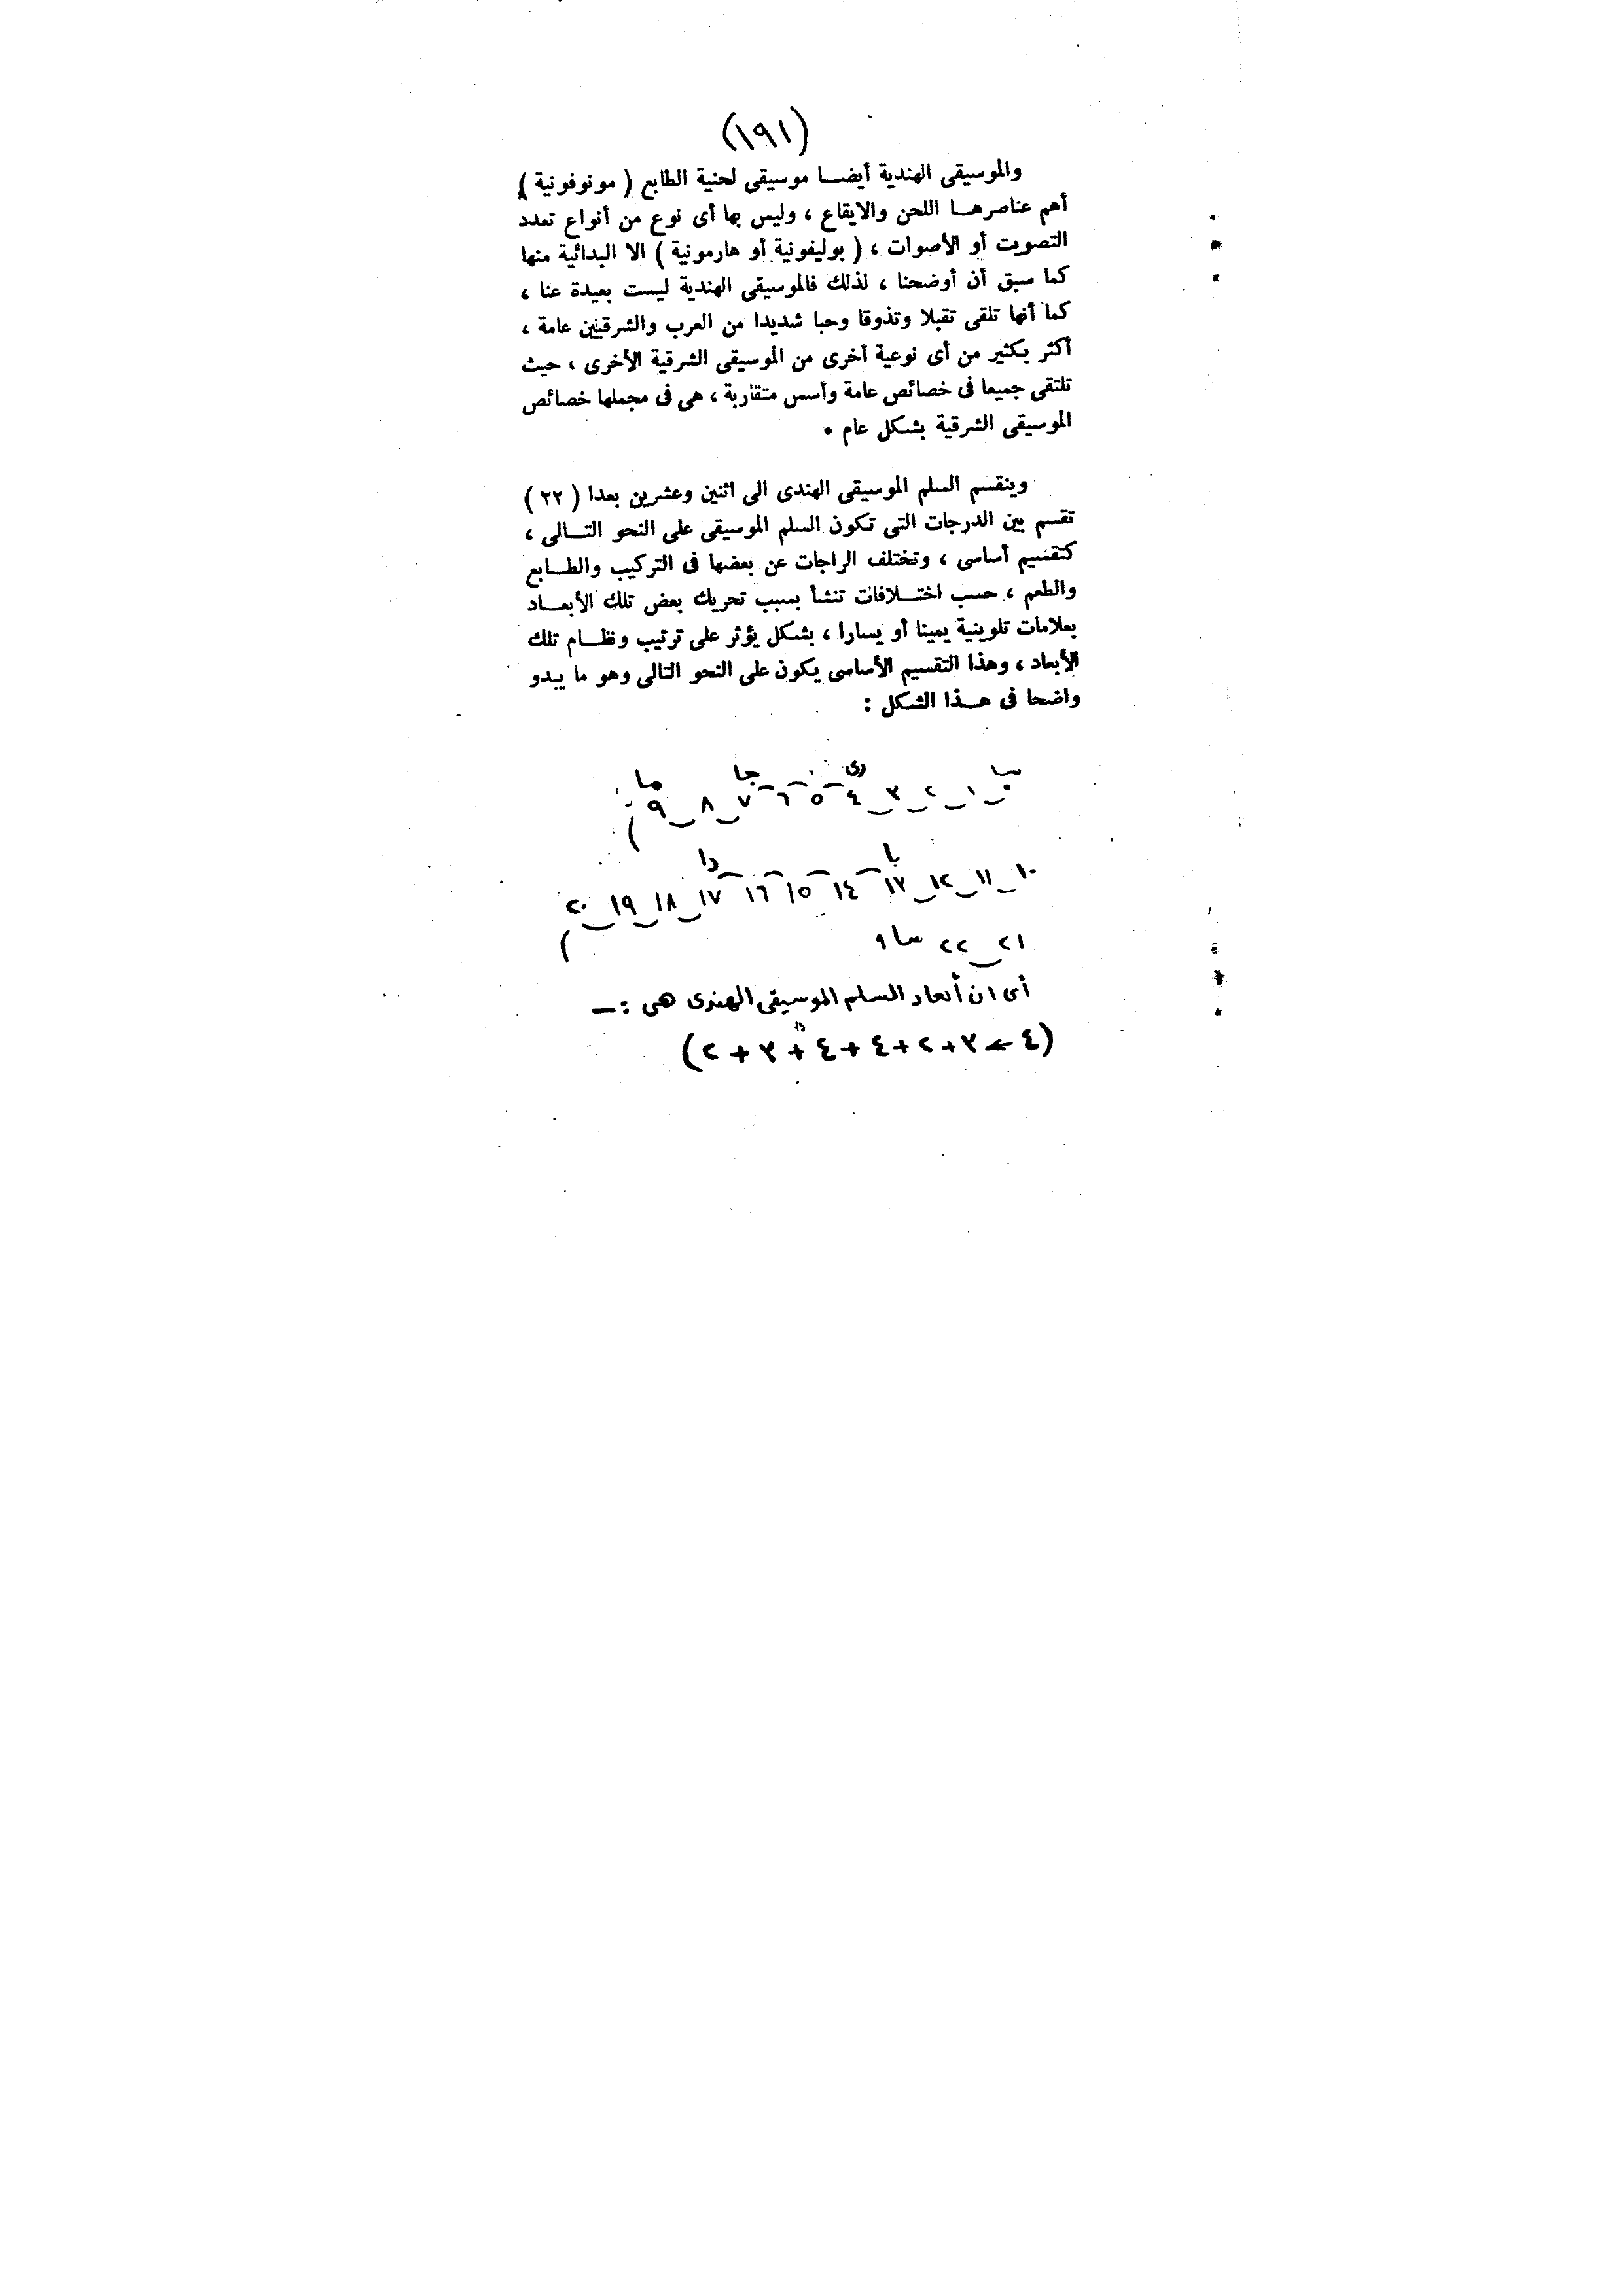 (١٩١)
والموسيقى الهندية أيضـــا موسيقى لحنية الطابع ( مونوفونية )
أهم عناصرهـــا اللحن والايقاع ، وليس بها أى نوع من أنواع تعدد
التصويت أو الأصوات ، ( بوليفونية أو هارمونية ) الا البدائية منها
كما سبق أن أوضحنا ، لذلك فالموسيقى الهندية ليست بعيدة عنا ،
كما أنها تلقى تقبلا وتذوقا وحبا شديدا من العرب والشرقيين عامة ،
أكثر بكثير من أى نوعية أخرى من الموسيقى الشرقية الأخرى ، حيث
تلتقى جميعا فى خصائص عامة وأسس متقاربة ، هى فى مجملها خصائص
الموسيقى الشرقية بشكل عام .
وينقسم السلم الموسيقى الهندى الى اثنين وعشرين بعدا ( ٢٢ )
تقسم بين الدرجات التى تكون السلم الموسيقى على النحو التـــالى ،
كتقسيم أساسى ، وتختلف الراجات عن بعضها فى التركيب والطـــابع
والطعم ، حسب اختـــلافات تنشأ بسبب تحريك بعض تلك الأبعـــاد
بعلامات تلوينية يمينا أو يسارا ، بشكل يؤثر على ترتيب ونظـــام تلك
الأبعاد ، وهذا التقسيم الأساسى يكون على النحو التالى وهو ما يبدو
واضحا فى هـــذا الشكل :
سا رى جا ما
٠ ١ ٢ ٣ ٤ ٥ ٦ ٧ ٨ ٩
با دا
١٠ ١١ ١٢ ١٣ ١٤ ١٥ ١٦ ١٧ ١٨ ١٩ ٢٠
٢١ ٢٢ سا
أى ان أبعاد السلم الموسيقى الهندى هى :ـ
(٤ + ٣ + ٢ + ٤ + ٤ + ٣ + ٢)